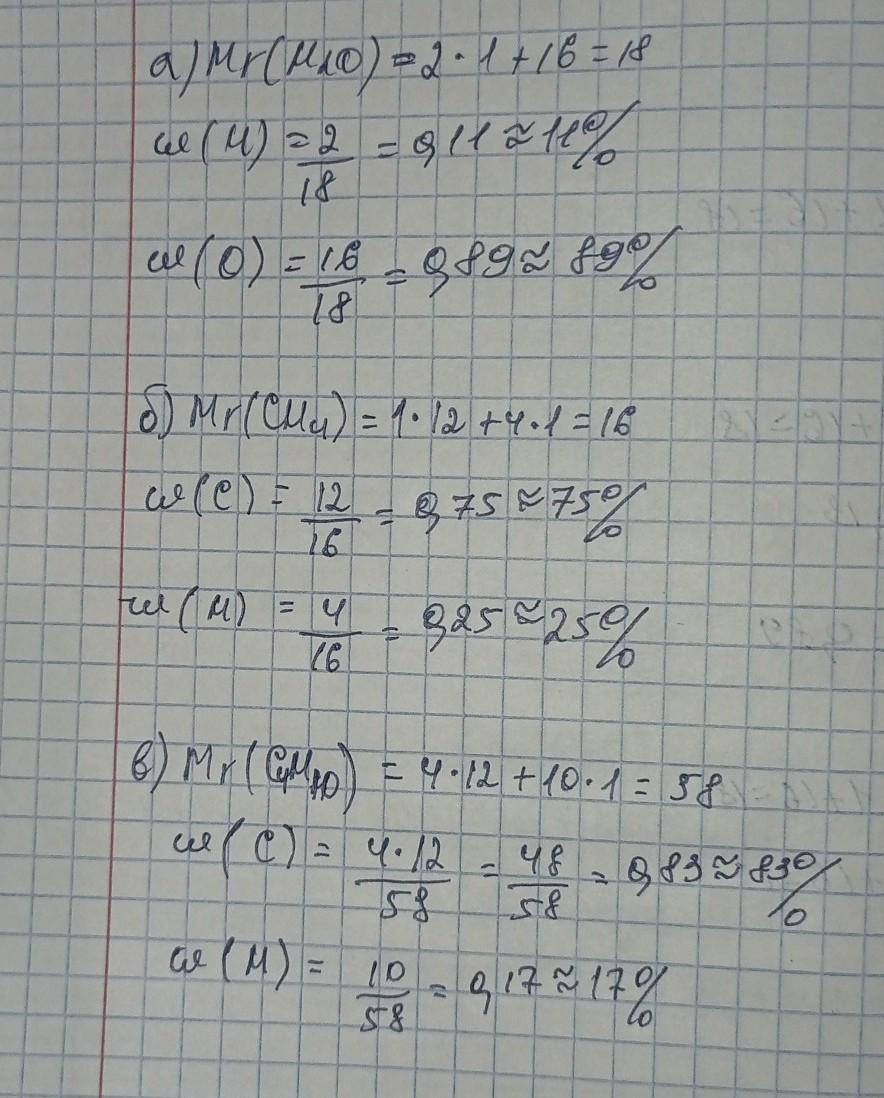 а) Mr(H2O) = 2·1+16=18
ω(H) = 2/18 = 0,11 ≈ 11%
ω(O) = 16/18 = 0,89 ≈ 89%
б) Mr(CH4) = 1·12+4·1=16
ω(C) = 12/16 = 0,75 ≈ 75%
ω(H) = 4/16 = 0,25 ≈ 25%
в) Mr(C4H10) = 4·12+10·1=58
ω(C) = 4·12/58 = 48/58 = 0,83 ≈ 83%
ω(H) = 10/58 = 0,17 ≈ 17%